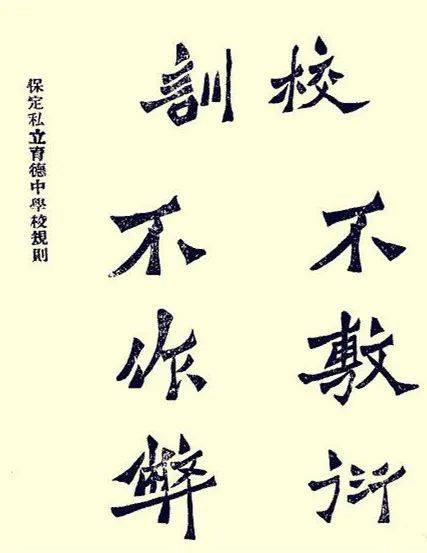 校訓
不敷衍
不作弊
保定私立育德中學校規則